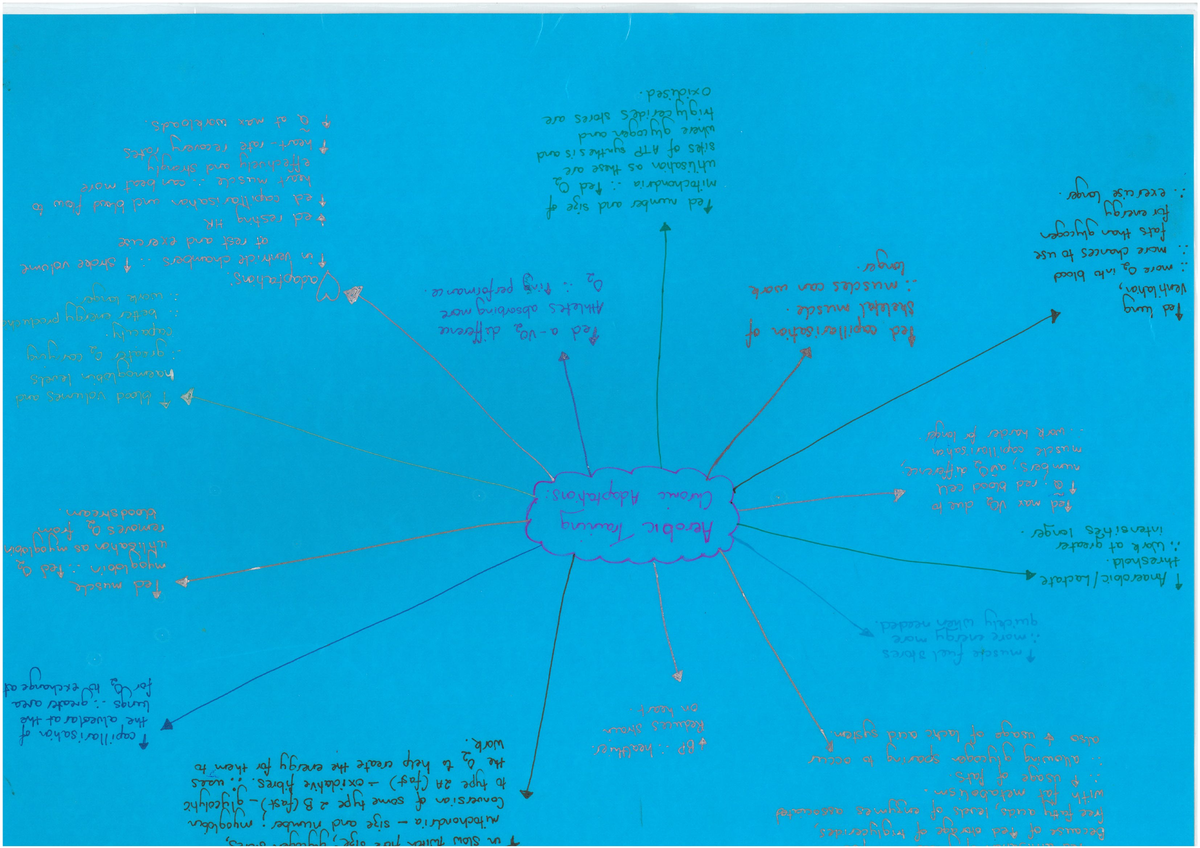 Aerobic Training
Chronic Adaptations:
↑ in slow twitch fibre size, glycogen stores,
mitochondria - size and number, myoglobin
Conversion of some type 2B (fast) - glycolytic
to type 2A (fast) - oxidative fibres. ∴ uses
the O2 to help create the energy for them to
work.
because of ↑ed storage of triglycerides,
free fatty acids, levels of enzymes associated
with fat metabolism.
∴ ↑ usage of fats
allowing glycogen sparing to occur
also ↓ usage of lactic acid system
↓BP ∴ healthier.
Reduces strain
on heart.
↑ capillarisation of
the alveolar at the
lungs ∴ greater area
for O2 to exchange at
↑ muscle fuel stores
∴ more energy more
quickly when needed.
↑ed muscle
myoglobin ∴ ↑ed O2
utilisation as myoglobin
removes O2 from
bloodstream
↑ Anaerobic/Lactate
threshold.
∴ work at greater
intensities longer.
↑ed max VO2 due to
↑ Q, red blood cell
numbers, a-VO2 difference,
muscle capillarisation
- work harder for longer
↑ blood volumes and
haemoglobin levels
∴ greater O2 carrying
capacity.
∴ better energy produced
∴ work longer
↑ed lung
ventilation,
∴ more O2 into blood
∴ more chances to use
fats than glycogen
for energy
∴ exercise longer.
↑ed capillarisation of
skeletal muscle.
∴ muscles can work
longer.
↑ed a-VO2 difference
Athletes absorbing more
O2 ∴ ↑ing performance.
adaptations:
↑ in ventricle chambers ∴ ↑ stroke volume
at rest and exercise
↓ed resting HR
↑ed capillarisation and blood flow to
heart muscle ∴ can beat more
effectively and strongly
↑ heart-rate recovery rates
↑ Q at max workloads.
↑ed number and size of
mitochondria ∴ ↑ed O2
utilisation as these are
sites of ATP synthesis and
where glycogen and
triglycerides stores are
oxidised.